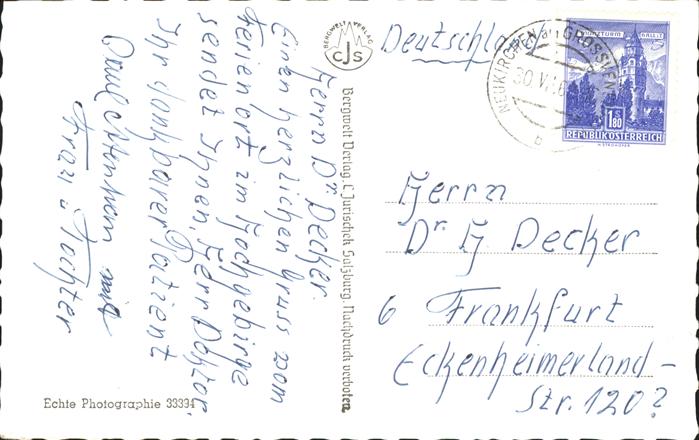 Herrn Dr Decker.
Einen herzlichen Gruss vom
Ferienort im Hochgebirge
sendet Ihnen, Herr Doktor.
Ihr dankbarer Patient
mit
Frau u Tochter
BERGWELT VERLAG
CJS
Bergwelt Verlag, C. Jurischek Salzburg. Nachdruck verboten.
Echte Photographie 33334
Deutschland
NEUKIRCHEN am GROSSVEN
30.VI.6
b
MÜNZTURM HALL i. T.
S
1.80
REPUBLIK ÖSTERREICH
Herrn
Dr H Decker
6 Frankfurt
Eckenheimerland-
Str. 120?